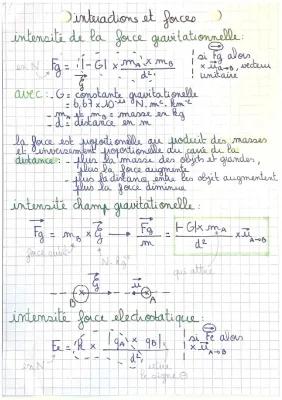 interactions et forces
intensité de la force gravitationnelle:
en N Fg = |-G| × mA × mB / d² | si Fg alors × u A→B, vecteur unitaire
avec: - G = constante gravitationelle
= 6,67 × 10⁻¹¹ N. m². km⁻²
- mA et mB = masse en kg
- d = distance en m
la force est proportionelle au produit des masses
et inversement proportionelle du carré de la
distance: - plus la masse des objets et grandes,
plus la force augmente
- plus la distance entre les objet augmentent
plus la force diminue
intensité champ gravitationelle:
Fg = mB × G → Fg / m = |-G| × mA / d² × u A→B
N. kg⁻¹
qui attire
G u
B A
intensité force electrostatique:
Fe = |k × |qA × qB| / d² | si Fe alors × u A→B
en N
le signe ⊖